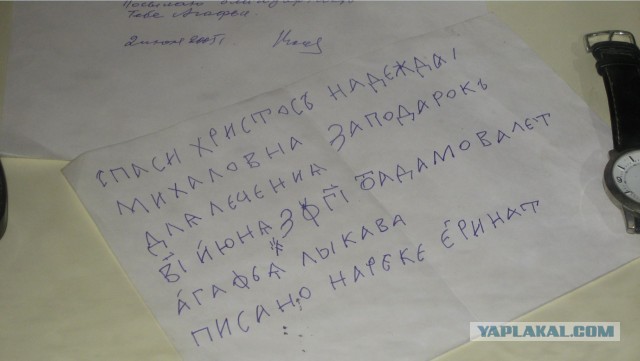 Тебе Агафьи
СПАСИ ХРИСТОСЪ НАДЕЖДА!
МИХАЛОВНА ЗАПОДАРОКЬ
ДЛАЛЕЧЕНИА
ВІ ИЮНА ЗФГІ БАДАМОВАЛЕТ
АГАФЬА ЛЫКАВА
ПИСАНО НАРЕКЕ ЕРИНАТ
YAPLAKAL.COM